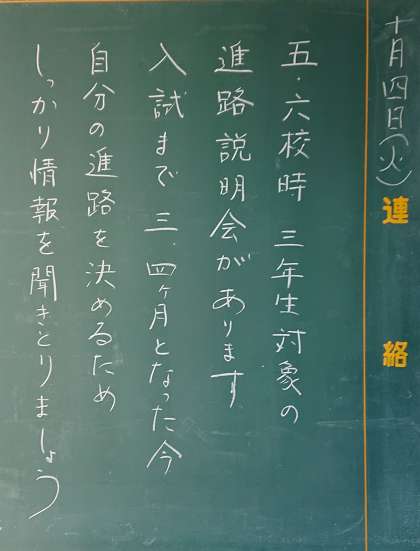 十月四日(火)
連絡
五・六校時 三年生対象の
進路説明会があります
入試まで三、四ヶ月となった今
自分の進路を決めるため
しっかり情報を聞きとりましょう